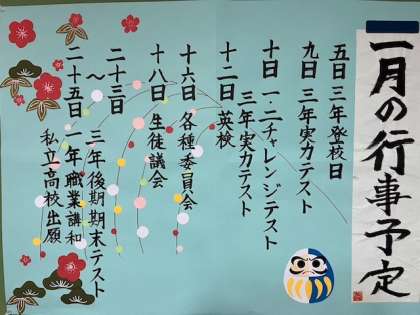 一月の行事予定
五日 三年登校日
九日 三年実力テスト
十日 一・二チャレンジテスト
三年実力テスト
十二日 英検
十六日 各種委員会
十八日 生徒議会
二十三日
〜 三年後期期末テスト
二十五日 一年職業講和
私立高校出願